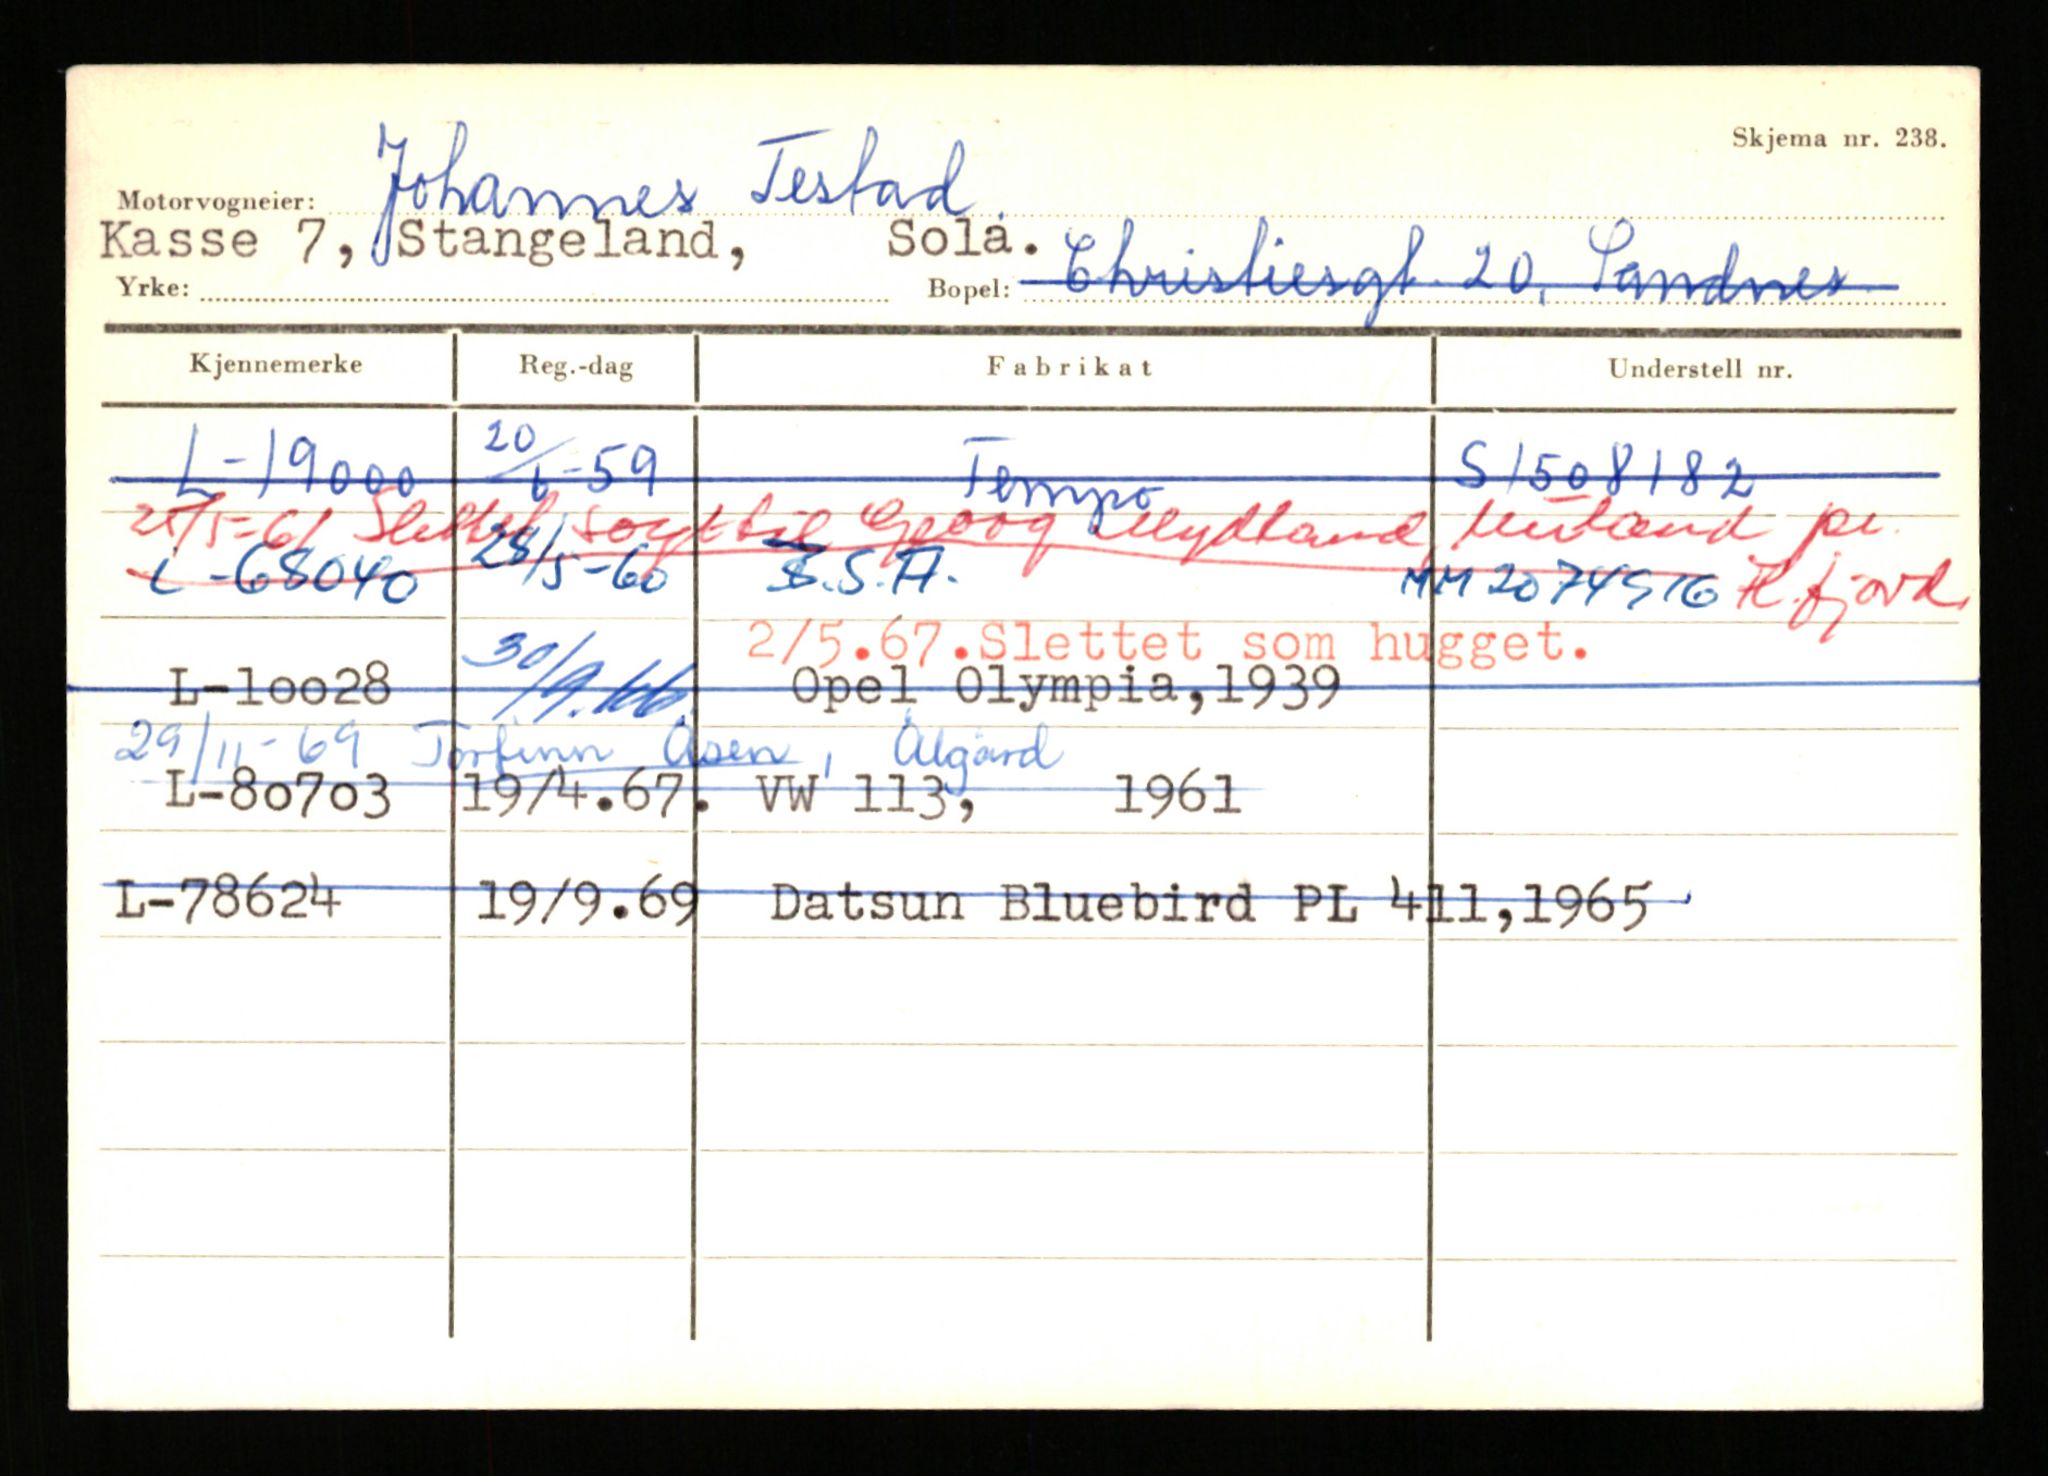 Skjema nr. 238.
Motorvogneier: Johannes Testad.
Kasse 7, Stangeland, Sola.
Yrke: Bopel: Christiesgt. 20, Sandnes
Kjennemerke Reg.-dag Fabrikat Understell nr.
L-19000 20/6-59 Tempo S1508182
25/5-61 Slettet solgt til Georg Mydland, pr. H.fjord.
L-68040 28/5-60 B.S.A.
2/5.67.Slettet som hugget.
L-10028 30/9.66. Opel Olympia,1939
29/11-69 Torfinn Åsen, Ålgård
L-80703 19/4.67. VW 113, 1961
L-78624 19/9.69 Datsun Bluebird PL 411,1965